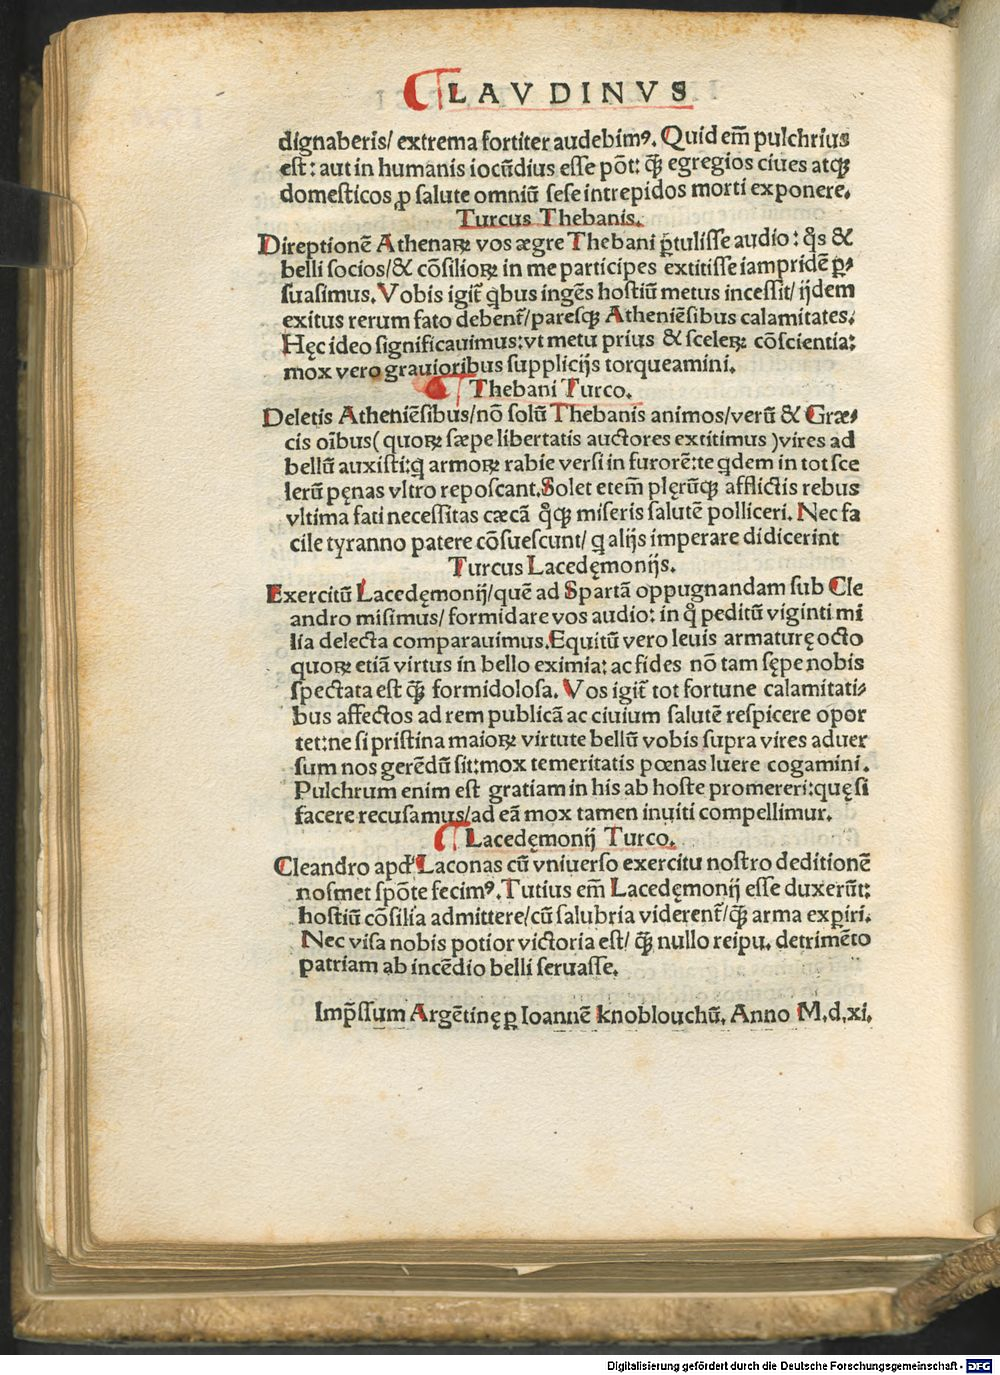 LAVDINVS
dignaberis/ extrema fortiter audebimꝰ. Quid em̃ pulchrius
eſt: aut in humanis iocũdius eſſe põt: q̃ꝫ egregios ciues atqꝫ
domeſticos ꝑ ſalute omniũ ſeſe intrepidos morti exponere.
Turcus Thebanis.
Direptionẽ Athenaꝝ vos ægre Thebani p̃tuliſſe audio: q̃s &
belli ſocios/& cõſilioꝝ in me participes extitiſſe iampridẽ ꝑ⸗
ſuaſimus. Vobis igit̃ qbus ingẽs hoſtiũ metus inceſſit/ ijdem
exitus rerum fato debent̃/pareſqꝫ Atheniẽſibus calamitates.
Hęc ideo ſignificauimus: vt metu prius & ſceleꝝ cõſcientia:
mox vero grauioribus ſupplicijs torqueamini.
Thebani Turco.
Deletis Atheniẽſibus/nõ ſolũ Thebanis animos/verũ & Græ⸗
cis oĩbus (quoꝝ ſæpe libertatis auctores extitimus ) vires ad
bellũ auxiſti: q armoꝝ rabie verſi in furorẽ: te qdem in tot ſce
lerũ pęnas vltro repoſcant. Solet etem̃ plęrũqꝫ afflictis rebus
vltima fati neceſſitas cæcã q̃qꝫ miſeris ſalutẽ polliceri. Nec fa
cile tyranno patere cõſueſcunt/ q alijs imperare didicerint
Turcus Lacedęmonijs.
Exercitũ Lacedęmonij/quẽ ad Spartã oppugnandam ſub Cle
andro miſimus/ formidare vos audio: in q̃ peditũ viginti mi
lia delecta comparauimus. Equitũ vero leuis armaturę octo
quoꝝ etiã virtus in bello eximia: ac fides nõ tam ſępe nobis
ſpectata eſt q̃ꝫ formidoloſa. Vos igit̃ tot fortune calamitati⸗
bus affectos ad rem publicã ac ciuium ſalutẽ reſpicere opor
tet: ne ſi priſtina maioꝝ virtute bellũ vobis ſupra vires aduer
ſum nos gerẽdũ ſit: mox temeritatis pœnas luere cogamini.
Pulchrum enim eſt gratiam in his ab hoſte promereri: quę ſi
facere recuſamus/ad eã mox tamen inuiti compellimur.
Lacedęmonij Turco.
Cleandro apd' Laconas cũ vniuerſo exercitu noſtro deditionẽ
noſmet ſpõte fecimꝰ. Tutius em̃ Lacedęmonij eſſe duxerũt:
hoſtiũ cõſilia admittere/cũ ſalubria viderent̃/q̃ꝫ arma exꝑiri.
Nec viſa nobis potior victoria eſt/ q̃ꝫ nullo reipu. detrimẽto
patriam ab incẽdio belli ſeruaſſe.
Imp̃ſſum Argẽtinę ꝑ Ioannẽ knoblouchũ. Anno M.d.xi.
Digitalisierung gefördert durch die Deutsche Forschungsgemeinschaft - DFG